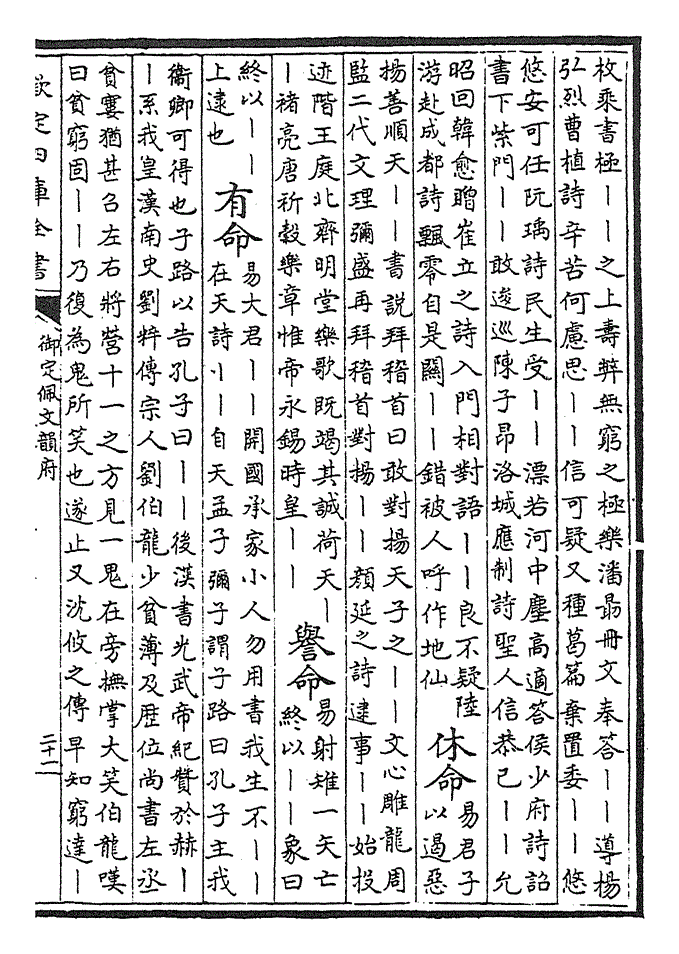 枚乘書極｜｜之上壽弊無窮之極樂潘勗冊文奉答｜｜導楊
弘烈曹植詩辛苦何慮思｜｜信可疑又種葛篇棄置委｜｜悠
悠安可任阮瑀詩民生受｜｜漂若河中塵高適答侯少府詩詔
書下紫門｜｜敢逡巡陳子昂洛城應制詩聖人信恭己｜｜允
昭回韓愈贈崔立之詩入門相對語｜｜良不疑陸
游赴成都詩飄零自是關｜｜錯被人呼作地仙
休命
易君子
以遏惡
揚善順天｜｜書說拜稽首曰敢對揚天子之｜｜文心雕龍周
監二代文理彌盛再拜稽首對揚｜｜顔延之詩逮事｜｜始投
迹階王庭北齊明堂樂歌既竭其誠荷天｜
｜褚亮唐祈穀樂章惟帝永錫時皇｜｜
譽命
易射雉一矢亡
終以｜｜象曰
終以｜｜
上逮也
有命
易大君｜｜開國承家小人勿用書我生不｜｜
在天詩｜｜自天孟子彌子謂子路曰孔子主我
衞卿可得也子路以告孔子曰｜｜後漢書光武帝紀贊於赫｜
｜系我皇漢南史劉粹傳宗人劉伯龍少貧薄及歴位尚書左丞
貧窶猶甚召左右將營十一之方見一鬼在旁撫掌大笑伯龍嘆
曰貧窮固｜｜乃復為鬼所笑也遂止又沈攸之傳早知窮達｜
欽定四庫全書
御定佩文韻府
二十二